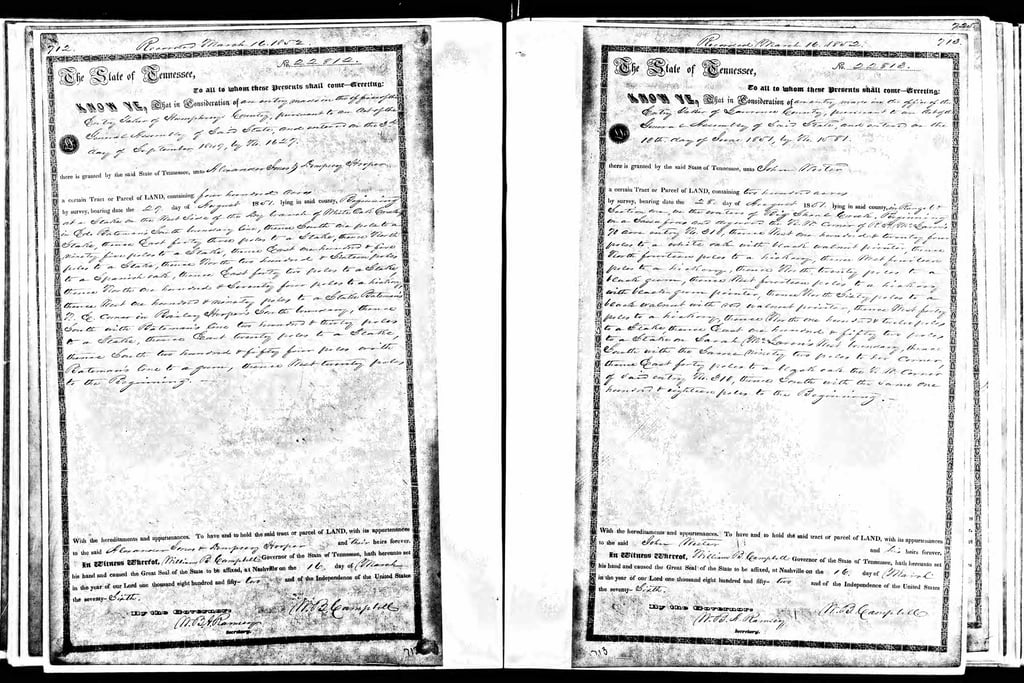 712.
Recorded March 16. 1852
No 22812.
The State of Tennessee,
To all to whom these Presents shall come—Greeting:
KNOW YE, That in Consideration of an entry made in the office of the
Entry Taker of Humphreys County, pursuant to an Act of the
General Assembly of said State, and entered on the 3rd
day of September 1849, by No. 1627.
there is granted by the said State of Tennessee, unto Alexander Jones & Dempsey Hooper
a certain Tract or Parcel of LAND, containing four hundred Acres
by survey, bearing date the 29 day of August 1851. lying in said county, Beginning
at a Stake on the West Side of the Dry branch of White Oak Creek
in Ed. Batemans South boundary line, thence South poles to a
Stake, thence East forty three poles to a Stake, thence North
ninety five poles to a Stake, thence East one hundred & five
poles to a Stake, thence North two hundred & Sixteen poles
to a Spanish oak, thence East forty two poles to a Stake
thence North one hundred & Seventy four poles to a hickory
thence West one hundred & ninety poles to a Stake Bateman's
N. E. Corner in Baisley Hooper's South boundary, thence
South with Bateman's line two hundred & thirty poles
to a Stake, thence East twenty poles to a Stake,
thence South two hundred & fifty four poles with
Bateman's line to a gum, thence West twenty poles
to the Beginning.
With the hereditaments and appurtenances. To have and to hold the said tract or parcel of LAND, with its appurtenances
to the said Alexander Jones & Dempsey Hooper and their heirs forever.
In Witness Whereof, William B. Campbell Governor of the State of Tennessee, hath hereunto set
his hand and caused the Great Seal of the State to be affixed, at Nashville on the 16 day of March
in the year of our Lord one thousand eight hundred and fifty-two and of the Independence of the United States
the seventy-Sixth.
By the Governor,
W. B. Campbell
W. B. A. Ramsey
Secretary.
Recorded March 16. 1852.
713.
No 22813.
The State of Tennessee,
To all to whom these Presents shall come—Greeting:
KNOW YE, That in Consideration of an entry made in the office of the
Entry Taker of Lawrence County, pursuant to an Act of the
General Assembly of said State, and entered on the
10th day of June 1851, by No. 1051.
there is granted by the said State of Tennessee, unto John
a certain Tract or Parcel of LAND, containing two hundred acres
by survey, bearing date the 28. day of August 1851. lying in said county, in Range 4
Section one, on the waters of Big Shoal Creek, Beginning
on a Sassafras and dogwood the N. W. corner of
acre entry No. 310, thence West one hundred & twenty four
poles to a white oak with black walnut pointer, thence
North fourteen poles to a hickory, thence West fourteen
poles to a hickory, thence North twenty poles to a
black gum, thence West fourteen poles to a hickory
with black gum pointer, thence North Sixty poles to a
black walnut with red walnut pointer, thence West forty
poles to a hickory, thence North one hundred & twelve poles
to a Stake, thence East one hundred & fifty two poles
to a Stake on Sarah McLaren's West boundary, thence
South with the Same ninety two poles to her Corner,
thence East forty poles to a black oak the N. W. Corner
of said entry No. 310, thence South with the Same one
hundred & eighteen poles to the Beginning.—
With the hereditaments and appurtenances. To have and to hold the said tract or parcel of LAND, with its appurtenances
to the said John and his heirs forever.
In Witness Whereof, William B. Campbell Governor of the State of Tennessee, hath hereunto set
his hand and caused the Great Seal of the State to be affixed, at Nashville on the 16 day of March
in the year of our Lord one thousand eight hundred and fifty-two and of the Independence of the United States
the seventy-Sixth.
By the Governor,
W. B. Campbell
W. B. A. Ramsey
Secretary.
713